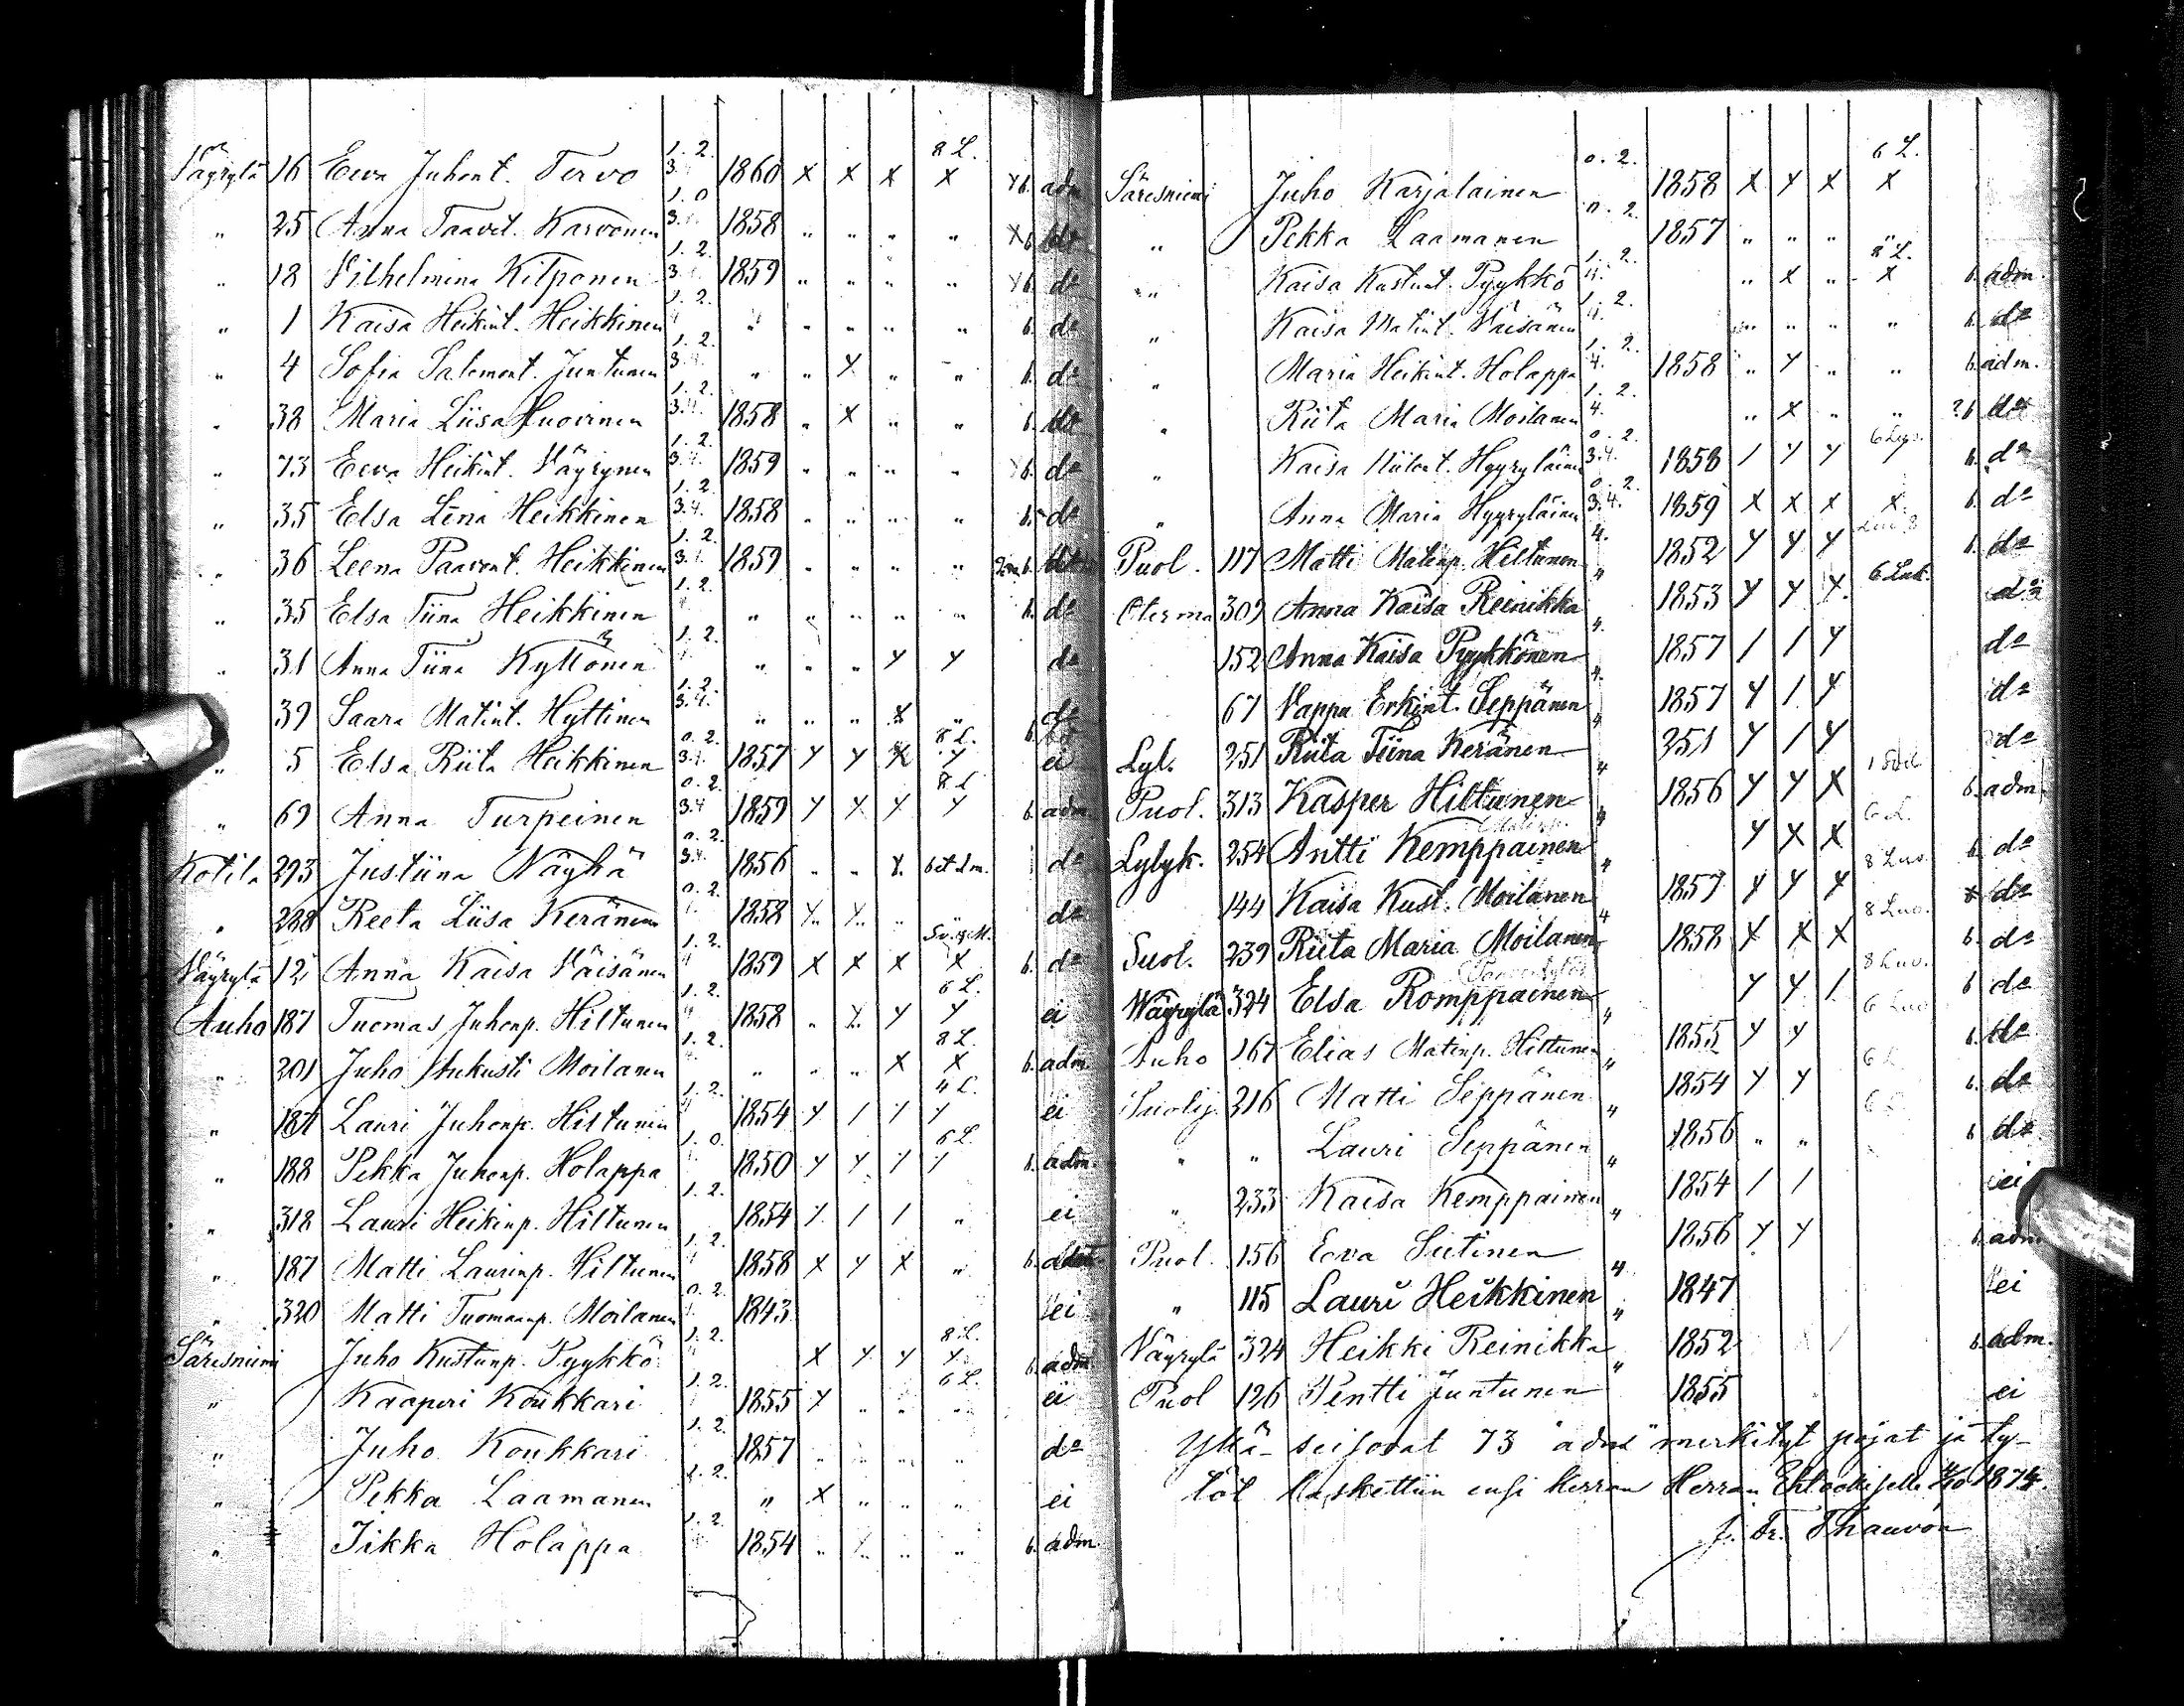 Väyrylä 16 Eeva Juhont. Tervo 1. 2. 3. 1860 x x x 8 L. x b. adm
" 25 Anna Taavet. Karvonen 1. 0 3. 1858 " " " " b.
" 18 Vilhelmina Kilponen 1. 2. 3. 1859 " " " " b. do
" 1 Kaisa Heikint. Heikkinen 1. 2. " " " " " b. do
" 4 Sofia Salomont. Juntunen 1. 2. 3. 4. " " y " " b. do
" 38 Maria Liisa Huovinen 1. 2. 3. 4. 1858 " x " " b.
" 73 Eeva Heikint. Väyrynen 1. 2. 3. 4. 1859 " " " " b. do
" 35 Elsa Lena Heikkinen 1. 2. 3. 4. 1858 " " " " b. do
" 36 Leena Paavont. Heikkinen 1. 2. 3. 1859 " " " " b.
" 35 Elsa Tiina Heikkinen 1. 2. " " " " " b. do
" 31 Anna Tiina Kyllönen 1. 2. " " " y y do
39 Saara Matint. Hyttinen 1. 2. 3. 4. " " " x " b.
" 5 Elsa Riita Heikkinen 0. 2. 3. 4. 1857 y y x 8 L. y ei
" 69 Anna Turpeinen 0. 2. 3. 4 1859 y x y 8 L y b. adm.
Kotila 293 Justiina Näyhä 0. 2. 3. 4. 1856 " " x do
" 288 Reeta Liisa Keränen 0. 2. 1858 y y " do
Väyrylä 12 Anna Kaisa Väisänen 1. 2. 1859 x x x x b. do
Auho 187 Tuomas Juhonp. Hiltunen 1. 2. 1858 " y y 6 L. y ei
" 201 Juho Aukusti Moilanen 1. 2. " " " x 8 L. x b. adm
" 187 Lauri Juhonp. Hiltunen 1. 2. 1854 y / / 4 L. y ei
" 188 Pekka Juhonp. Holappa 1. 0. 1850 y y / 6 L. / b. adm.
" 318 Lauri Heikinp. Hiltunen 1. 2. 1854 / / / " ei
" 187 Matti Laurinp. Hiltunen 1. 2. 1858 x y x " b.
" 320 Matti Tuomaanp. Moilanen 0. 2. 1843 ei
Säresniemi Juho Kustunp. Pyykkö 1. 2. x y y 8 L. y b. adm
" Kaaperi Koukkari 1. 2. 1855 y " " 6 L. " ei
" Juho Koukkari 1. 2. 1857 " " " " do
" Pekka Laamanen 1. 2. " x " " " ei
" Iikka Holappa 1. 2. 1854 " y " " b. adm.
Säresniemi Juho Karjalainen 0. 2. 1858 x y x 6 L. x
" Pekka Laamanen 0. 2. 1857 " " " "
" Kaisa Kustunt. Pyykkö 1. 2. 4. " x " 8 L. x b. adm.
" Kaisa Matint. Väisänen 1. 2. 4. " " " " b. do
" Maria Heikint. Holappa 1. 2. 4. 1858 " y " " b. adm.
" Riita Maria Moilanen 1. 2. 4. " x " "
" Kaisa Hyyryläinen 0. 2. 3. 4. 1858 / y y b. do
" Anna Maria Hyyryläinen 0. 2. 3. 4. 1859 x x x x b. do
Puol. 117 Matti Matinp. Hiltunen 4. 1852 y y y b. do
Oterma 309 Anna Kaisa Reinikka " 1853 y y y 6 Luk. do
152 Anna Kaisa Pyykkönen 4. 1857 / / y do
67 Vappu Erkint. Seppänen 4. 1857 y / y do
Lyl. 251 Riita Tiina Keränen 4 251 y / y do
Puol. 313 Kasper Hiltunen 4 1856 y y x b. adm
Lylyk. 254 Antti Kemppainen 4 y x x 6 L. b. do
144 Kaisa Kust. Moilanen " 1857 y y y 8 Luv. do
Suol. 239 Riita Maria Moilanen 4 1858 x x x 8 Luv. b. do
Wäyrylä 324 Elsa Romppainen y y / 8 Luv. b do
Auho 167 Elias Matinp. Hiltunen " 1855 y y 6 Luv b. do
Suolij. 216 Matti Seppänen " 1854 y y 6 L b. do
" " Lauri Seppänen " 1856 " " 6 L b do
" 233 Kaisa Kemppainen " 1854 / / ei
Puol. 156 Eeva Sutinen " 1856 y y b. adm
" 115 Lauri Heikkinen 4 1847 ei
Väyrylä 324 Heikki Reinikka " 1852 b. adm.
Puol 126 Pentti Juntunen " 1855 ei
Yllä seisovat 73 "adm" merkityt pojat ja ty-
töt laskettiin ensi kerran Herran Ehtoolliselle 1874.
J. Fr. Thauvón